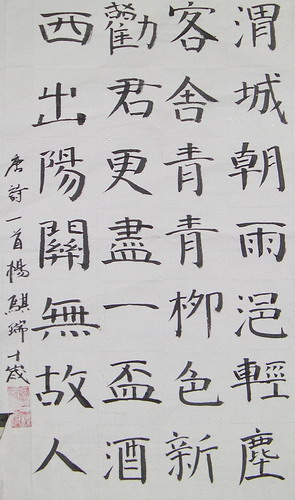 渭城朝雨浥輕塵
客舍青青柳色新
勸君更盡一盃酒
西出陽關無故人
唐詩一首楊騏瑞十歲